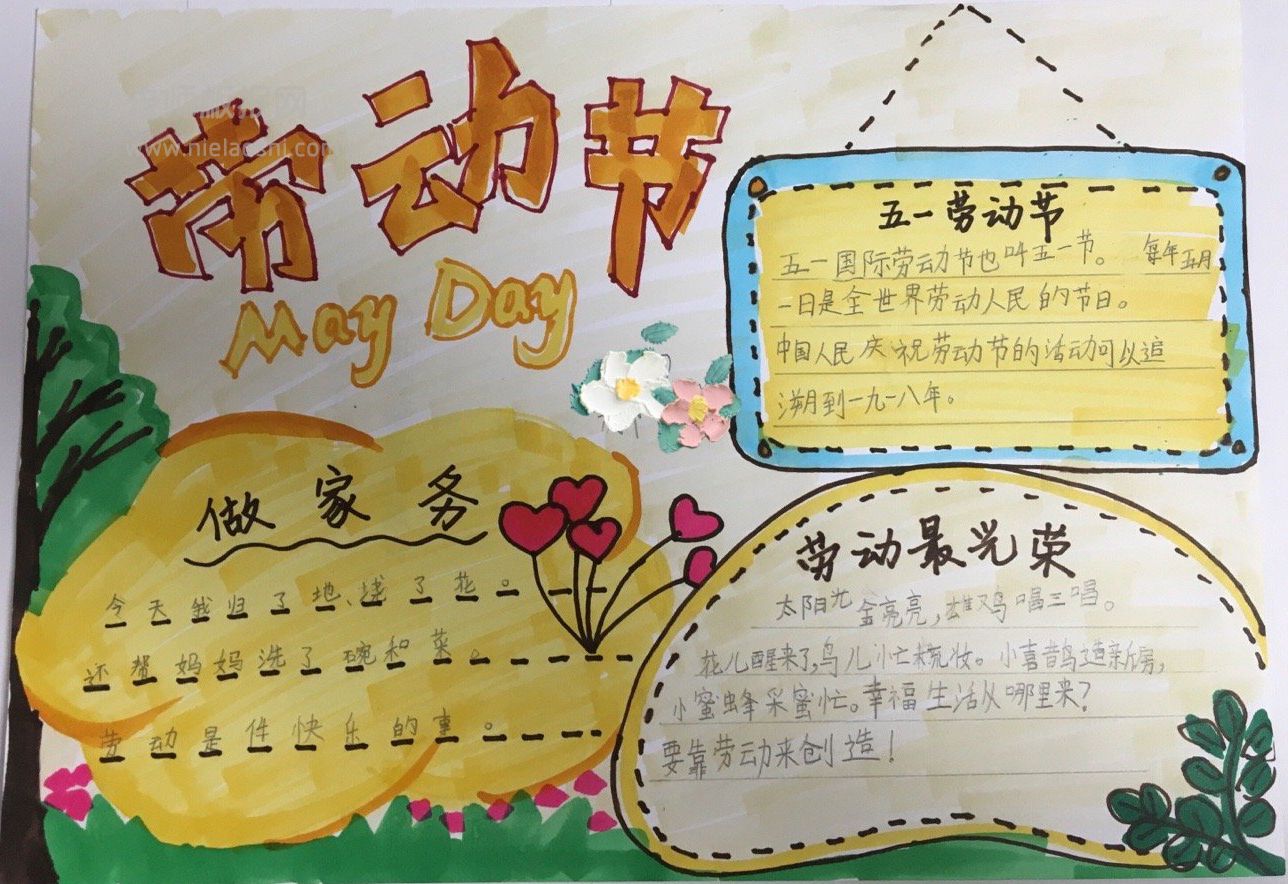 www.nielaoshi.com
劳动节
May Day
五一劳动节
五一国际劳动节也叫五一节。每年五月
一日是全世界劳动人民的节日。
中国人民庆祝劳动节的活动可以追
溯到一九一八年。
做家务
今天我归了地、浇了花。
还帮妈妈洗了碗和菜。
劳动是件快乐的事。
劳动最光荣
太阳光金亮亮,雄鸡唱三唱。
花儿醒来了,鸟儿忙梳妆。小喜鹊造新房,
小蜜蜂采蜜忙。幸福生活从哪里来?
要靠劳动来创造!